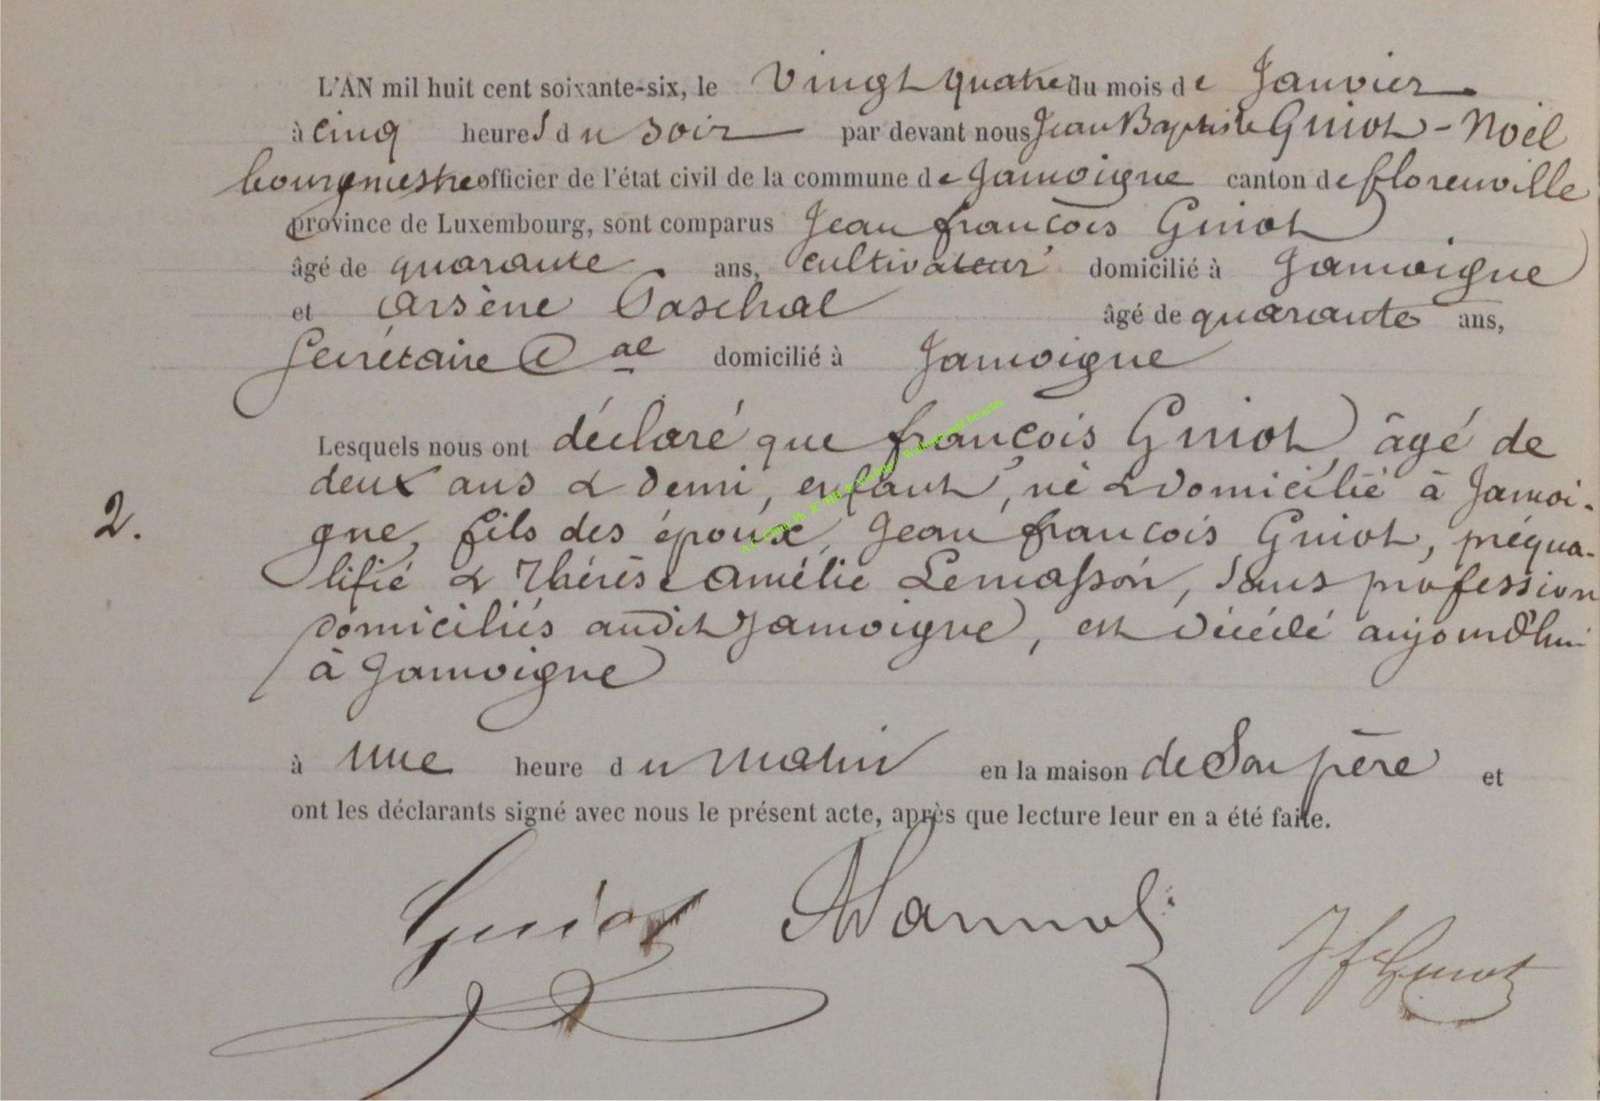 L'AN mil huit cent soixante-six, le vingt quatre du mois de Janvier
à cinq heures du soir par devant nous Jean Baptiste Guiot - Noël
bourgmestre officier de l'état civil de la commune de Jamoigne canton de florenville
province de Luxembourg, sont comparus Jean françois Guiot
âgé de quarante ans, cultivateur domicilié à Jamoigne
et arsène Paschal âgé de quarante ans,
Secrétaire Cal domicilié à Jamoigne
Lesquels nous ont déclaré que françois Guiot, âgé de
deux ans & demi, enfant, né & domicilié à Jamoi-
2. gne, fils des époux Jean françois Guiot, préqua-
lifié & Thérèse amélie Lemasson, sans profession
domiciliés audit Jamoigne, est décédé aujourd'hui
à Jamoigne
à une heure du matin en la maison de Son père et
ont les déclarants signé avec nous le présent acte, après que lecture leur en a été faite.
Guiot
Jf Guiot